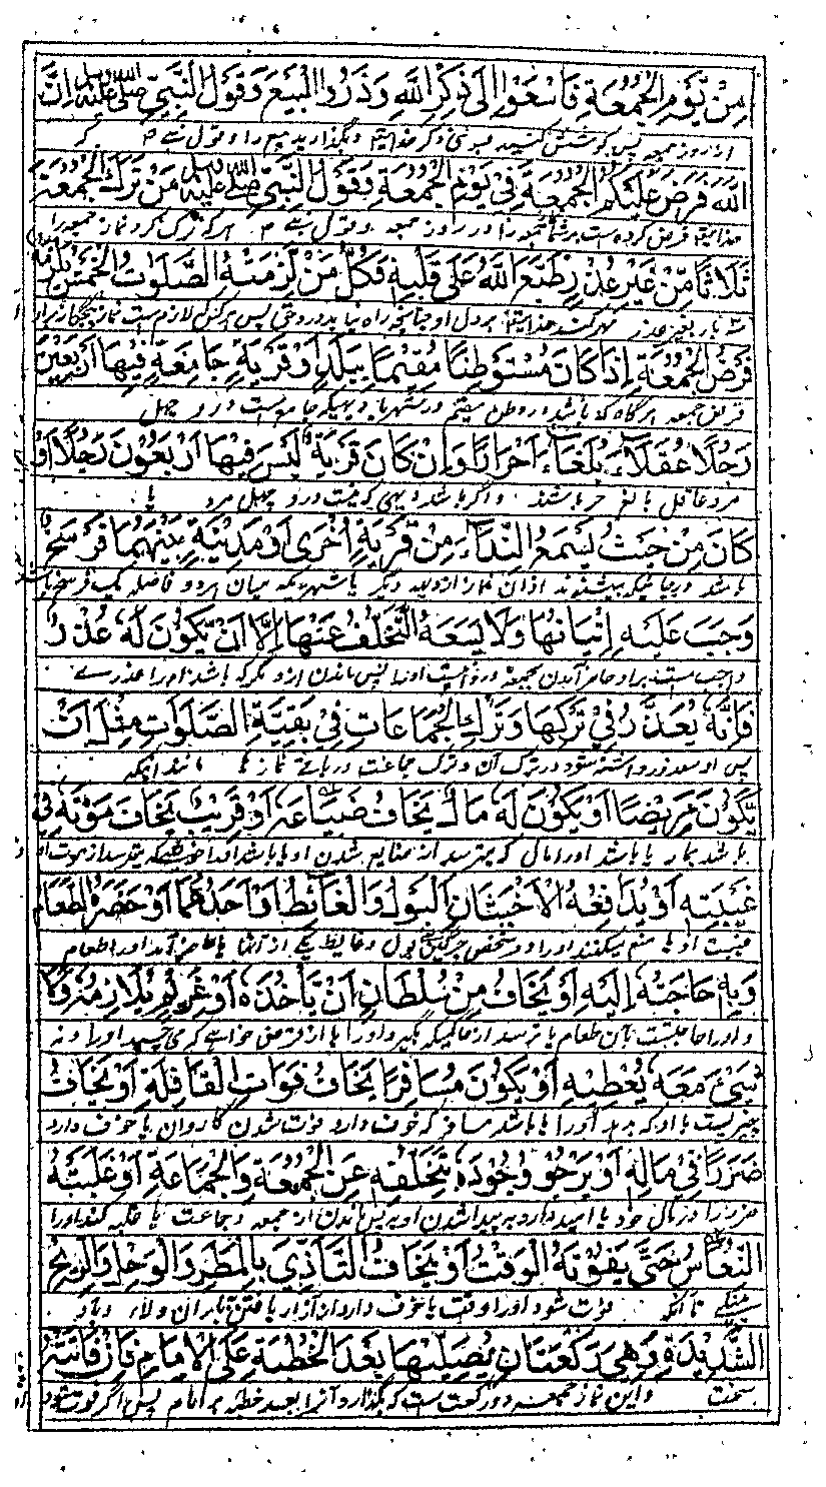 مِنْ يَّوْمِ الْجُمُعَةِ فَاسْعَوْا اِلٰى ذِكْرِ اللّٰهِ وَذَرُوا الْبَيْعَ وَقَوْلُ النَّبِيِّ صَلَّى اللّٰهُ عَلَيْهِ وَسَلَّمَ اِنَّ
از روز جمعه پس کوشش کنید بسوی ذکر و بگذارید بیع را و قول نبی
اللّٰهَ فَرَضَ عَلَيْكُمُ الْجُمُعَةَ فِيْ يَوْمِ الْجُمُعَةِ وَقَوْلُ النَّبِيِّ صَلَّى اللّٰهُ عَلَيْهِ وَسَلَّمَ مَنْ تَرَكَ الْجُمُعَةَ
فرض کرده است بر شما جمعه را در روز جمعه و قول نبی هر که ترک کرد نماز جمعه را
ثَلَاثًا مِّنْ غَيْرِ عُذْرٍ طَبَعَ اللّٰهُ عَلٰى قَلْبِهٖ فَكُلُّ مَنْ لَزِمَتْهُ الصَّلَوَاتُ الْخَمْسُ يَلْزَمُهٗ
بار بغیر عذر مهر کند بر دل او پس هر کس که لازم است نماز
فَرْضُ الْجُمُعَةِ اِذَا كَانَ مُسْتَوْطِنًا مُقِيْمًا بِبَلَدٍ اَوْ قَرْيَةٍ جَامِعَةٍ فِيْهَا اَرْبَعُوْنَ
فرض جمعه هر گاه که باشد در وطن مقیم در شهر یا چهل
رَجُلًا عُقَلَاءَ بُلَغَاءَ اَحْرَارًا وَاِنْ كَانَ قَرْيَةٌ لَيْسَ فِيْهَا اَرْبَعُوْنَ رَجُلًا اَوْ
مرد عاقل بالغ حر باشند و اگر باشد دیهی که نیست درو چهل مرد یا
كَانَ مِنْ حَيْثُ يُسْمَعُ النِّدَاءُ مِنْ قَرْيَةٍ اُخْرٰى اَوْ مَدِيْنَةٍ بَيْنَهُمَا فَرْسَخٌ
باشد اذان نماز از دیه دیگر یا شهریکه میان هر دو فاصله یک فرسخ
وَجَبَ عَلَيْهِ اِتْيَانُهَا وَلَا يَسَعُهُ التَّخَلُّفُ عَنْهَا اِلَّا اَنْ يَّكُوْنَ لَهٗ عُذْرٌ
واجب است برو حاضر آمدن جمعه و روا نیست او را پس ماندن ازو مگر که باشد او را عذرے
فَاِنَّهٗ يُعْذَرُ فِيْ تَرْكِهَا وَتَرْكِ الْجُمَاعَاتِ فِيْ بَقِيَّةِ الصَّلَوَاتِ مِثْلُ اَنْ
پس او معذور داشته شود در ترک آن و ترک جماعت در باقی نماز ها مانند اینکه
يَّكُوْنَ مَرِيْضًا اَوْ يَكُوْنَ لَهٗ مَالٌ يَخَافُ ضَيَاعَهٗ اَوْ قَرِيْبٌ يَخَافُ مَوْتَهٗ فِيْ
باشد بیمار یا باشد او را مالی که می ترسد از ضایع شدن او یا باشد او را از موت او
غَيْبَتِهٖ اَوْ يُدَافِعُهُ الْاَخْبَثَانِ الْبَوْلُ وَالْغَائِطُ اَوْ اَحَدُهُمَا اَوْ حَضَرَهُ الطَّعَامُ
غیبت او یا میکنند او را بول و غایط یکے از آنها یا حاضر آمد او را طعام
وَبِهٖ حَاجَتُهٗ اِلَيْهِ اَوْ يَخَافُ مِنْ سُلْطَانٍ اَنْ يَأْخُذَهٗ اَوْ غَرِيْمٍ يُلَازِمُهٗ وَلَا
و او را حاجت است بآن طعام یا ترسد از حاکمیکه بگیرد او را یا از قرض خواهے که او را و نه
شَيْءَ مَعَهٗ يُعْطِيْهِ اَوْ يَكُوْنَ مُسَافِرًا يَخَافُ فَوَاتَ الْقَافِلَةِ اَوْ يَخَافُ
چیزیست با او که بدهد آنرا یا باشد مسافر که خوف دارد فوت شدن کاروان یا خوف دارد
ضَرَرًا فِيْ مَالِهٖ اَوْ يَرْجُوْ وُجُوْدَهٗ بِتَخَلُّفِهٖ عَنِ الْجُمُعَةِ وَالْجُمَاعَةِ اَوْ غَلَبَتْهُ
ضرر را در مال خود یا امید دارد بر پیدا شدن او به پس ماندن از جمعه و جماعت یا غلبه کند او را
النُّعَاسُ حَتّٰى يَفُوْتَهُ الْوَقْتُ اَوْ يَخَافُ التَّاَذِّيَ بِالْمَطَرِ وَالْوَحْلِ وَالرِّيْحِ
تا آنکه فوت شود او را وقت یا خوف دارد از آزار یافتن بباران و لاے و باد
الشَّدِيْدَةِ وَهِيَ رَكْعَتَانِ يُصَلِّيْهَا بَعْدَ الْخُطْبَةِ عَلَى الْاِمَامِ فَاِنْ فَاتَتْهُ
سخت و این نماز جمعه دو رکعت ست که بگذارد آنرا بعد خطبه بر امام پس اگر فوت شود